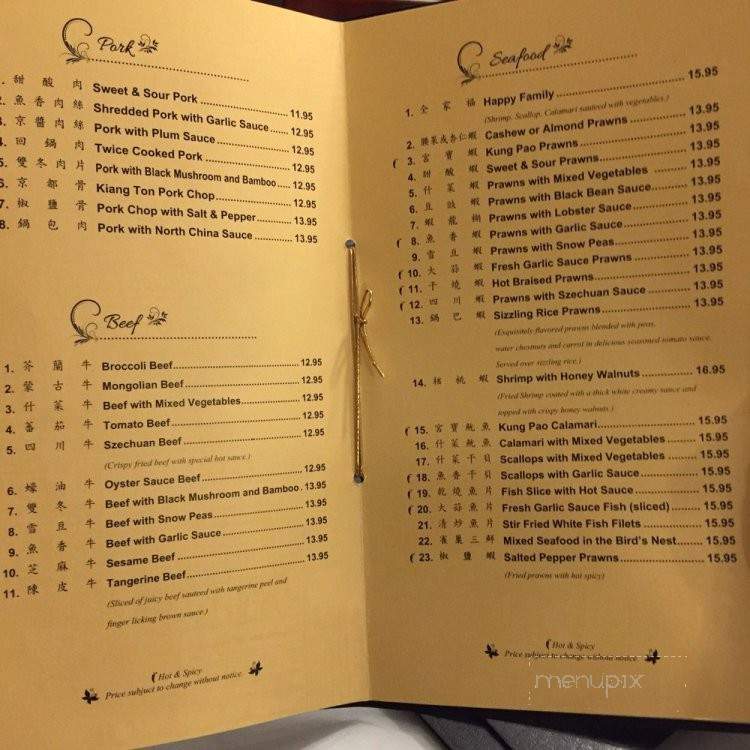 Pork
1. 甜酸肉 Sweet & Sour Pork 11.95
2. 魚香肉絲 Shredded Pork with Garlic Sauce 12.95
3. 京醬肉絲 Pork with Plum Sauce 12.95
4. 回鍋肉 Twice Cooked Pork 12.95
5. 雙冬肉片 Pork with Black Mushroom and Bamboo 12.95
6. 京都骨 Kiang Ton Pork Chop 12.95
7. 椒鹽骨 Pork Chop with Salt & Pepper 13.95
8. 鍋包肉 Pork with North China Sauce 13.95
Beef
1. 芥蘭牛 Broccoli Beef 12.95
2. 蒙古牛 Mongolian Beef 12.95
3. 什菜牛 Beef with Mixed Vegetables 12.95
4. 蕃茄牛 Tomato Beef 12.95
5. 四川牛 Szechuan Beef 12.95
(Crispy fried beef with special hot sauce.)
6. 蠔油牛 Oyster Sauce Beef 12.95
7. 雙冬牛 Beef with Black Mushroom and Bamboo 13.95
8. 雪豆牛 Beef with Snow Peas 13.95
9. 魚香牛 Beef with Garlic Sauce 13.95
10. 芝麻牛 Sesame Beef 13.95
11. 陳皮牛 Tangerine Beef 13.95
(Sliced of juicy beef sauteed with tangerine peel and
finger licking brown sauce.)
Hot & Spicy
Price subject to change without notice.
Seafood
1. 全家福 Happy Family 15.95
(Shrimp, Scallop, Calamari sauteed with vegetables.)
2. 腰果或杏仁蝦 Cashew or Almond Prawns 13.95
3. 宮寶蝦 Kung Pao Prawns 13.95
4. 甜酸蝦 Sweet & Sour Prawns 13.95
5. 什菜蝦 Prawns with Mixed Vegetables 13.95
6. 豆豉蝦 Prawns with Black Bean Sauce 13.95
7. 蝦龍糊 Prawns with Lobster Sauce 13.95
8. 魚香蝦 Prawns with Garlic Sauce 13.95
9. 雪豆蝦 Prawns with Snow Peas 13.95
10. 大蒜蝦 Fresh Garlic Sauce Prawns 13.95
11. 干燒蝦 Hot Braised Prawns 13.95
12. 四川蝦 Prawns with Szechuan Sauce 13.95
13. 鍋巴蝦 Sizzling Rice Prawns 13.95
(Exquisitely flavored prawns blended with peas,
water chestnuts and carrot in delicious seasoned tomato sauce.
Served over sizzling rice.)
14. 核桃蝦 Shrimp with Honey Walnuts 16.95
(Fried Shrimp coated with a thick white creamy sauce and
topped with crispy honey walnuts.)
15. 宮寶魷魚 Kung Pao Calamari 15.95
16. 什菜魷魚 Calamari with Mixed Vegetables 15.95
17. 什菜干貝 Scallops with Mixed Vegetables 15.95
18. 魚香干貝 Scallops with Garlic Sauce 15.95
19. 乾燒魚片 Fish Slice with Hot Sauce 15.95
20. 大蒜魚片 Fresh Garlic Sauce Fish (sliced) 15.95
21. 清炒魚片 Stir Fried White Fish Filets 15.95
22. 雀巢三鮮 Mixed Seafood in the Bird's Nest 15.95
23. 椒鹽蝦 Salted Pepper Prawns 15.95
(Fried prawns with hot spicy)
Hot & Spicy
Price subject to change without notice.
menupix